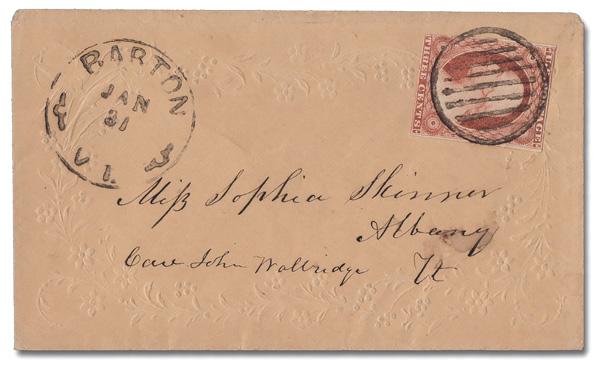 BARTON
JAN
31
VT
THREE CENTS
Miſs Sophia Skinner
Albany
Care John Walbridge Vt